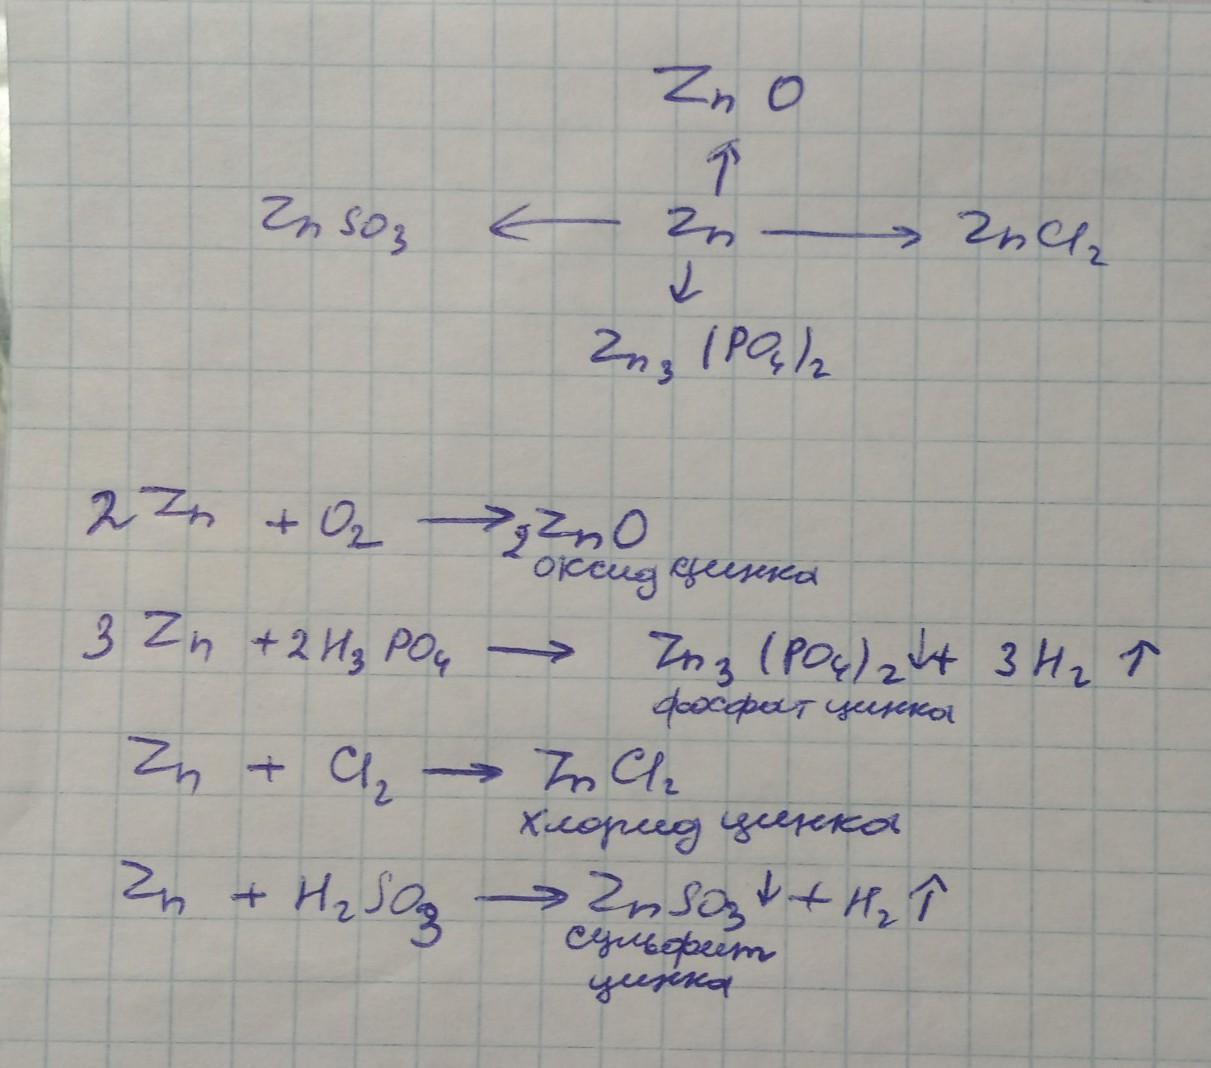 ZnO
↑
ZnSO₃ ← Zn → ZnCl₂
↓
Zn₃(PO₄)₂
2Zn + O₂ → 2ZnO
оксид цинка
3Zn + 2H₃PO₄ → Zn₃(PO₄)₂↓ + 3H₂↑
фосфат цинка
Zn + Cl₂ → ZnCl₂
хлорид цинка
Zn + H₂SO₃ → ZnSO₃↓ + H₂↑
сульфит
цинка